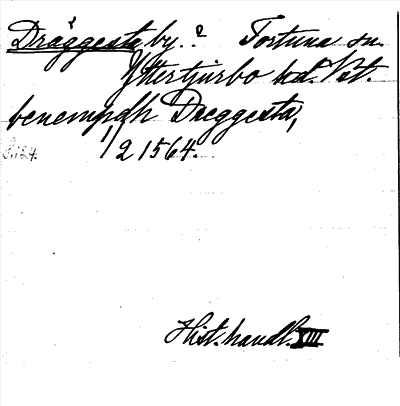 Dräggesta by. ? Fortuna sn.
Yttertjurbo hd. Vst.
benempdh Dreggesta,
S. 124. 1/2 1564.
Hist. handl. XIII